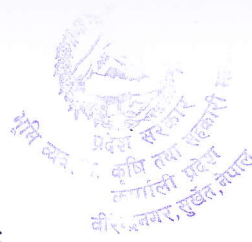 प्रदेश सरकार
भूमि व्यव
कृषि तथा सहकारी
कर्णाली प्रदेश
नगर, सुर्खेत, नेपाल